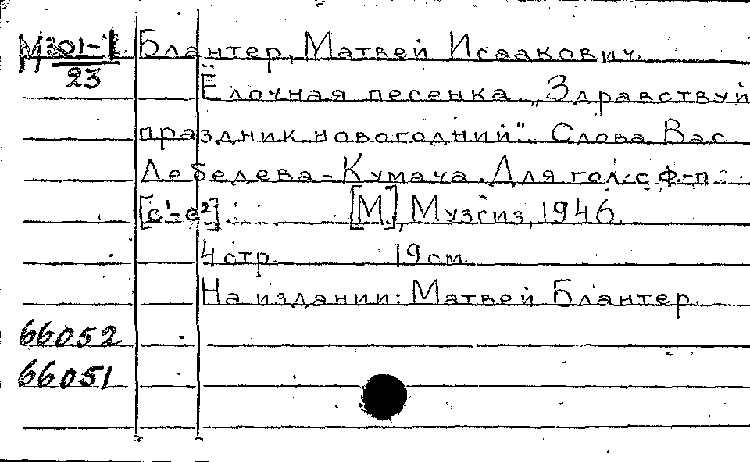 М301-1 Блантер, Матвей Исаакович.
23
Ёлочная песенка. „Здравствуй
праздник новогодний“. Слова Вас.
Лебедева-Кумача. Для гол. с ф-п.
[c¹-e²]. [М.], Музгиз, 1946.
4 стр. 19 см.
На издании: Матвей Блантер.
66052
66051